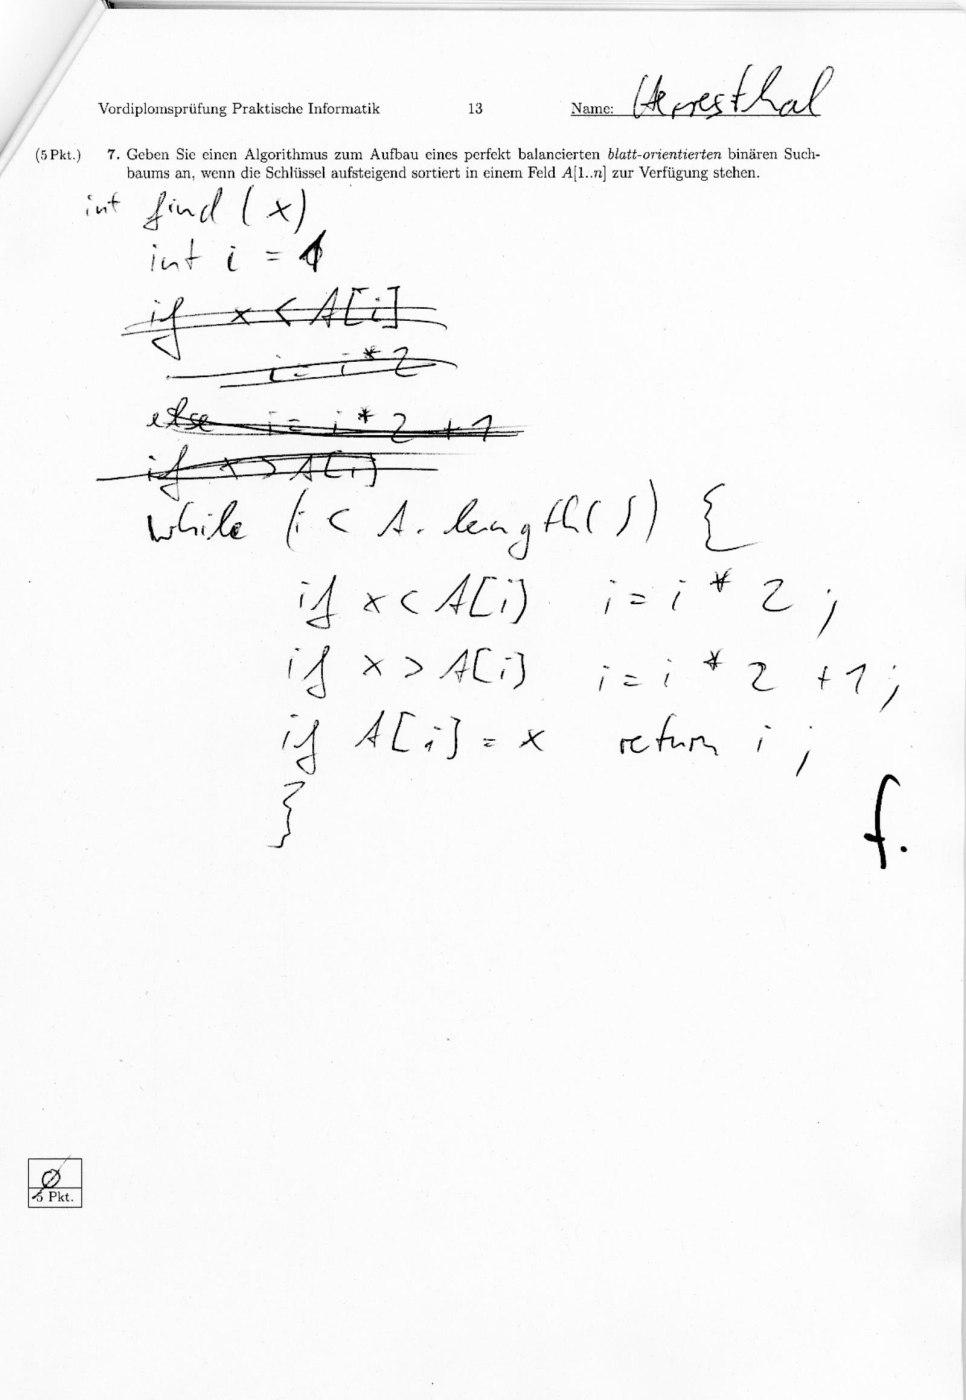 Vordiplomsprüfung Praktische Informatik 13 Name: Herresthal
(5 Pkt.) 7. Geben Sie einen Algorithmus zum Aufbau eines perfekt balancierten blatt-orientierten binären Such-
baums an, wenn die Schlüssel aufsteigend sortiert in einem Feld A[1..n] zur Verfügung stehen.
int find (x)
int i = 1
if x < A[i]
i = i * 2
else i = i * 2 + 1
if x > A[i]
while (i < A.length()) {
if x < A[i] i = i * 2 ;
if x > A[i] i = i * 2 + 1 ;
if A[i] = x return i ;
}
f.
0
5 Pkt.